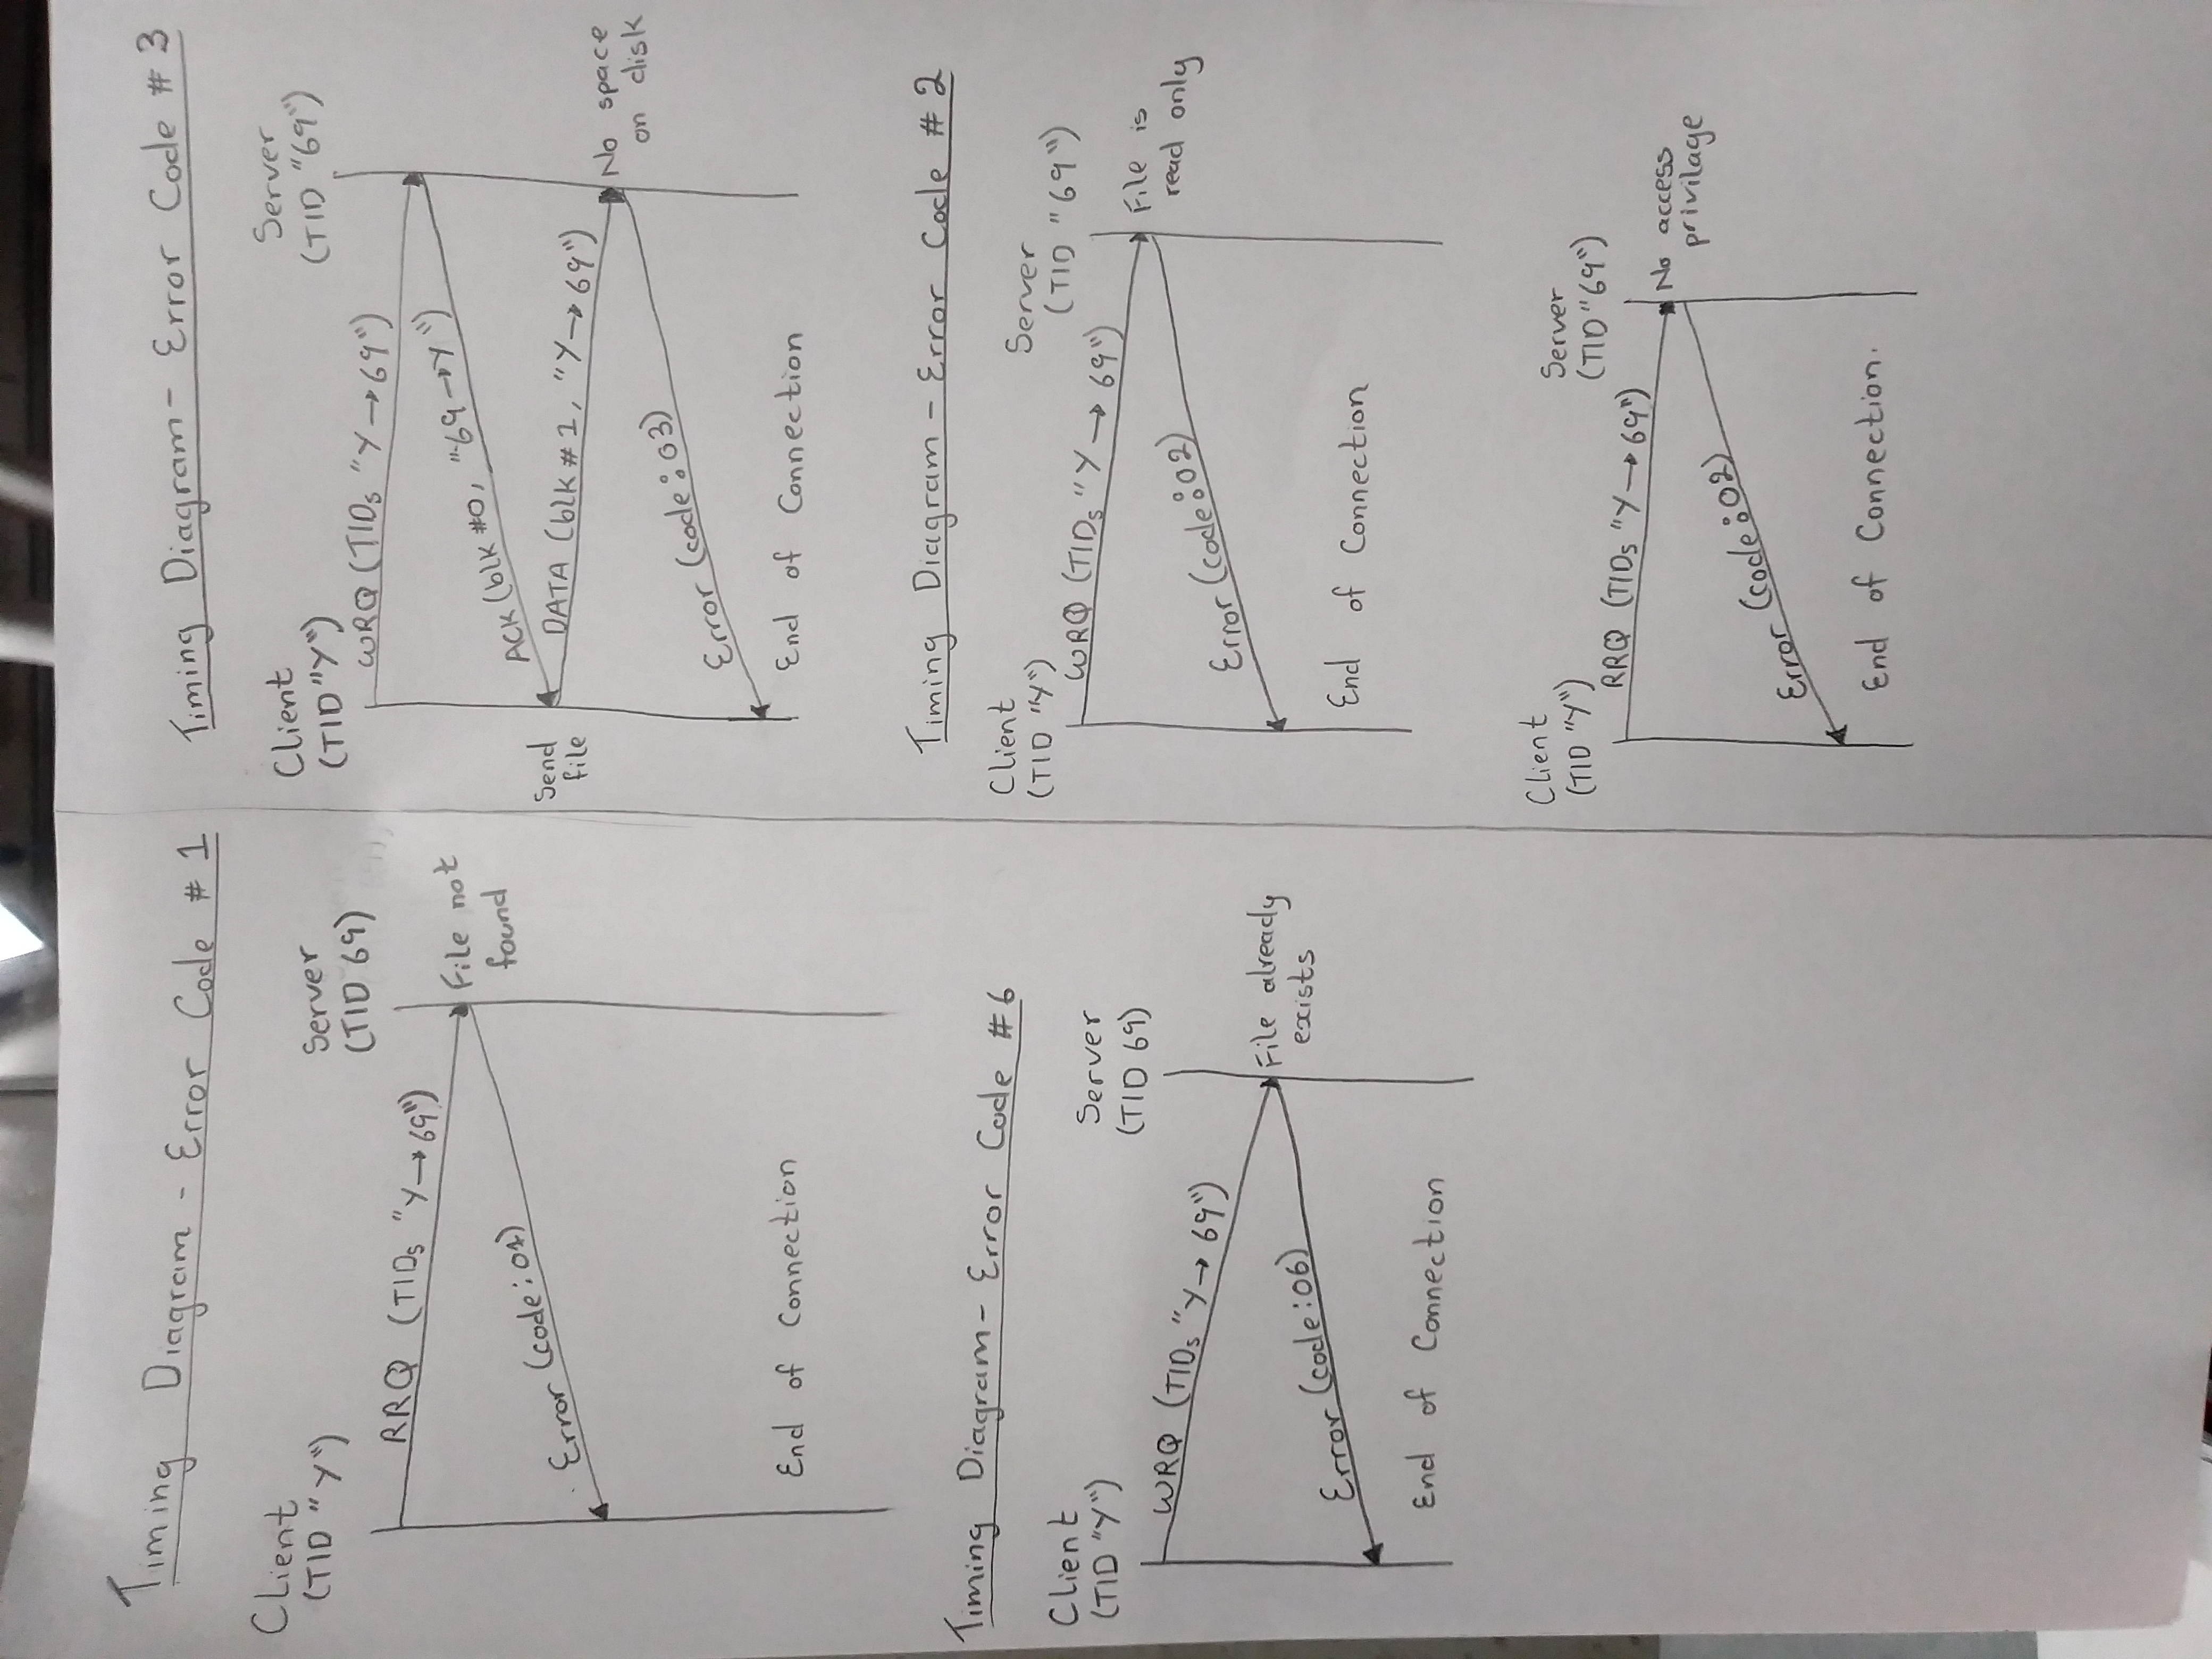 Timing Diagram - Error Code # 1
Client
(TID "Y")
Server
(TID 69)
RRQ (TIDs "Y→69")
File not
found
Error (code: 01)
End of Connection
Timing Diagram - Error Code #6
Client
(TID "Y")
Server
(TID 69)
WRQ (TIDs "Y→69")
File already
exists
Error (code:06)
End of Connection
Timing Diagram - Error Code # 3
Client
(TID "Y")
Server
(TID "69")
WRQ (TIDs "Y→69")
ACK (blk #0, "69→Y")
Send
file
DATA (blk # 1, "Y→69")
No space
on disk
Error (code: 03)
End of Connection
Timing Diagram - Error Code # 2
Client
(TID "Y")
Server
(TID "69")
WRQ (TIDs "Y→69")
File is
read only
Error (code:02)
End of Connection
Client
(TID "Y")
Server
(TID "69")
RRQ (TIDs "Y→69")
No access
privilage
Error (code:02)
End of Connection.